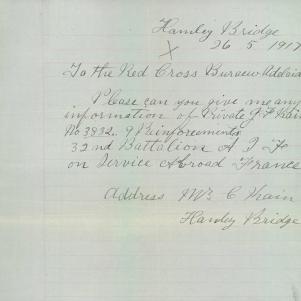 Hamley Bridge
X 26 5 1917
To the Red Cross Bureau Adelaid
Please can you give me any
information of Private J F Kain
No 3832. 9 Reinforcements
32nd Battalion A I F
on Service Abroad France
Address Mr C Kain
Hamley Bridge